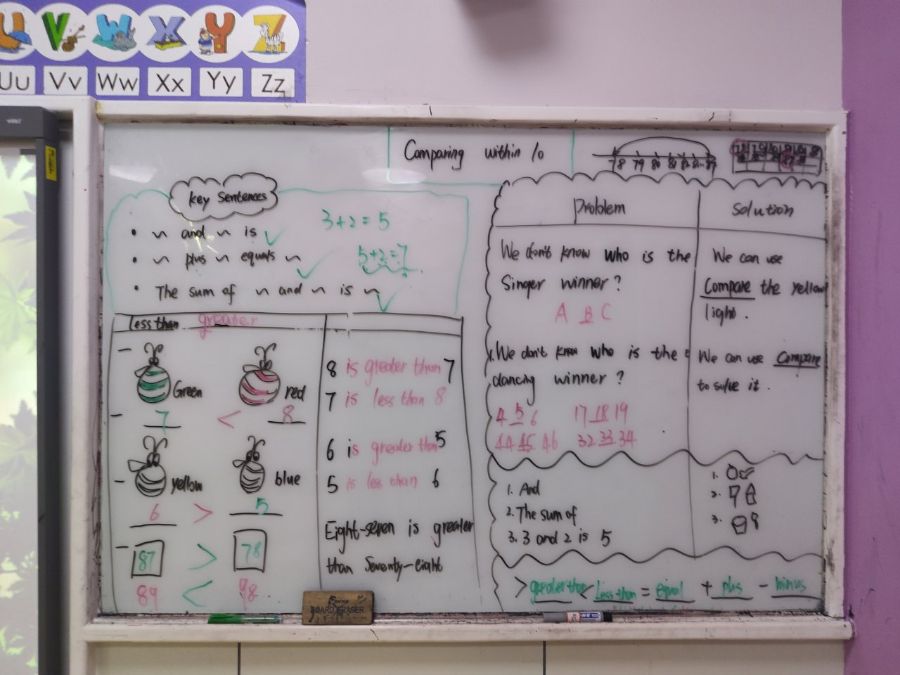 U V W X Y Z
Uu Vv Ww Xx Yy Zz
Comparing within 10
78 79 80
key Sentences
• ~ and ~ is ✓
3+2=5
• ~ plus ~ equals ~ ✓
5+2=7
• The sum of ~ and ~ is ~ ✓
less than greater
Green red
7 < 8
yellow blue
6 > 5
87 > 78
89 < 98
8 is greater than 7
7 is less than 8
6 is greater than 5
5 is less than 6
Eight-seven is greater
than Seventy-eight
Problem
Solution
We don't know who is the
Singer winner?
A B C
We can use
Compare the yellow
light.
We don't know who is the
dancing winner?
4 5 6 17 18 19
44 45 46 32 33 34
We can use Compare
to solve it.
1. And
2. The sum of
3. 3 and 2 is 5
1.
2.
3.
> greater than < Less than = equal + plus - minus
BOARD ERASER